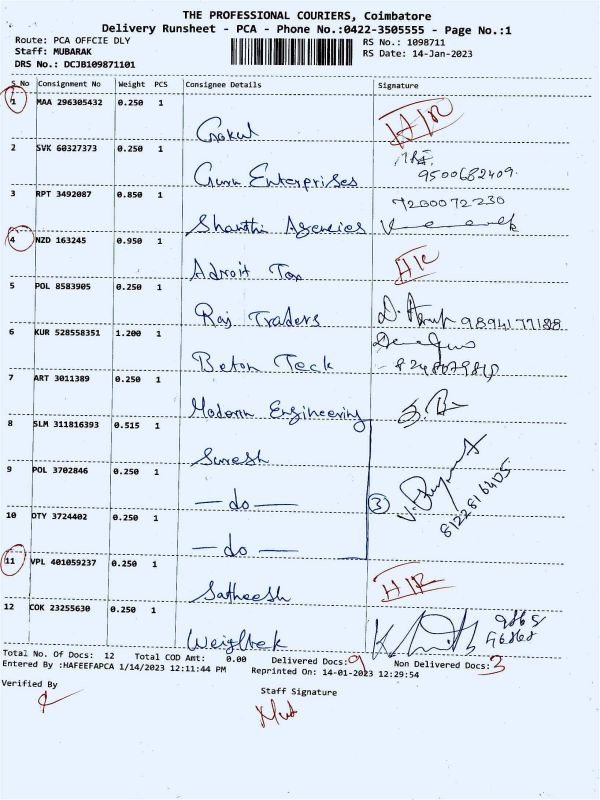 THE PROFESSIONAL COURIERS, Coimbatore
Delivery Runsheet - PCA - Phone No.:0422-3505555 - Page No.:1
Route: PCA OFFCIE DLY
RS No.: 1098711
Staff: MUBARAK
RS Date: 14-Jan-2023
DRS No.: DCJB109871101
S No Consignment No Weight PCS Consignee Details Signature
1 MAA 296305432 0.250 1
Gokul
2 SVK 60327373 0.250 1
9500682409.
Guru Enterprises
3 RPT 3492087 0.850 1
7200072230
Shanthi Agencies
4 NZD 163245 0.950 1
Adroit Tax
5 POL 8583905 0.250 1
Raj Traders
6 KUR 528558351 1.200 1
Beton Teck
7 ART 3011389 0.250 1
Modern Engineering
8 SLM 311816393 0.515 1
Suresh
9 POL 3702846 0.250 1
3
8122816405
— do —
10 OTY 3724402 0.250 1
— do —
11 VPL 401059237 0.250 1
Satheesh
12 COK 23255630 0.250 1
Weightek
Total No. Of Docs: 12 Total COD Amt: 0.00 Delivered Docs: 9 Non Delivered Docs: 3
Entered By :HAFEEFAPCA 1/14/2023 12:11:44 PM Reprinted On: 14-01-2023 12:29:54
Verified By
Staff Signature